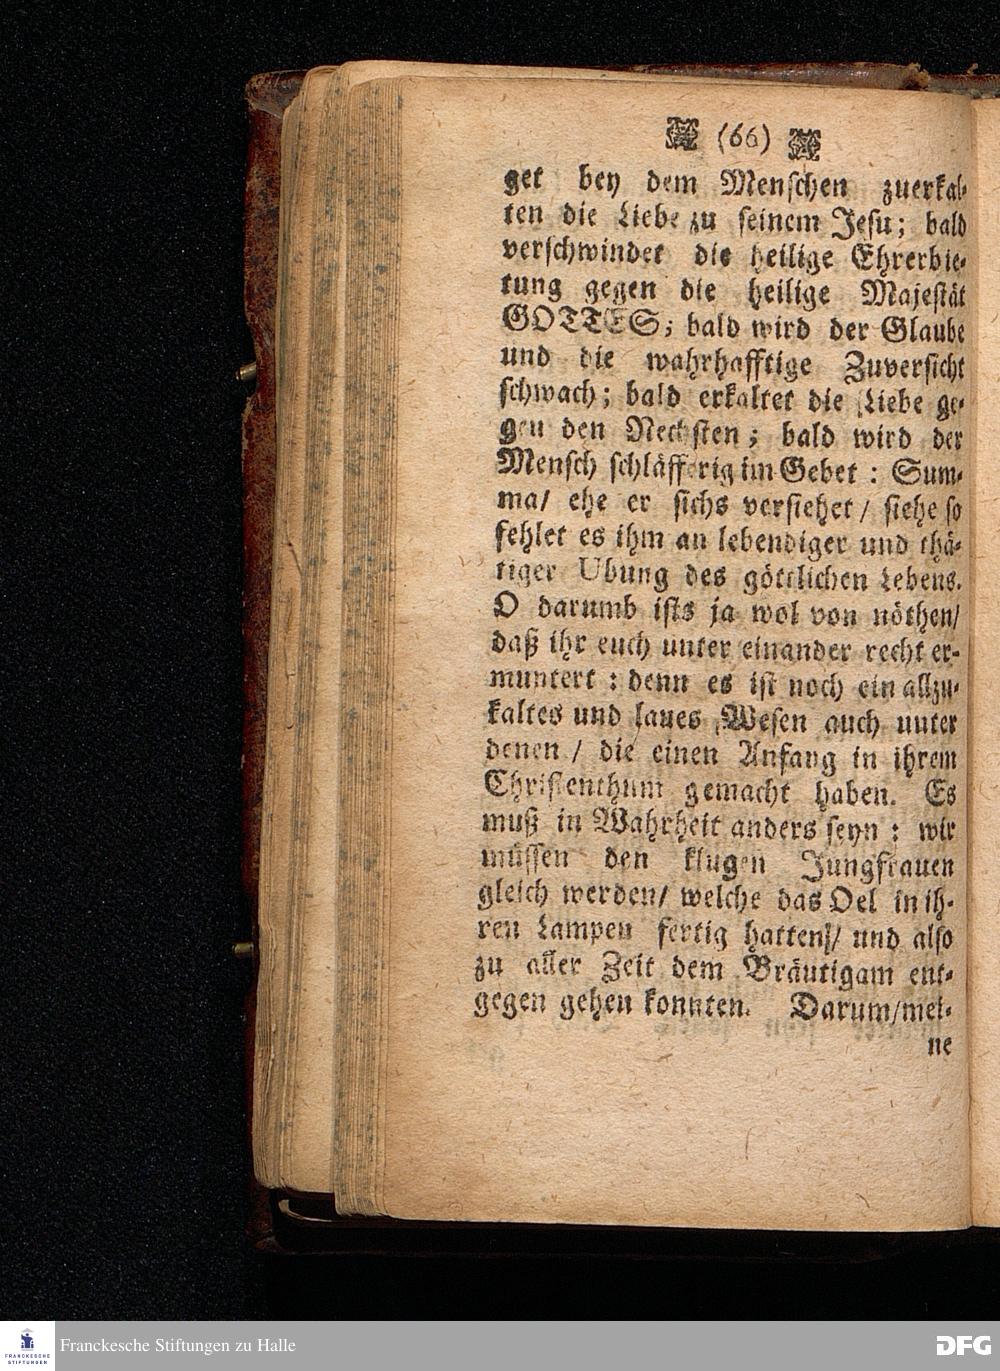 (66)
get bey dem Menschen zuerkal-
ten die Liebe zu seinem Jesu; bald
verschwindet die heilige Ehrerbie-
tung gegen die heilige Majestät
GOTTES; bald wird der Glaube
und die wahrhafftige Zuversicht
schwach; bald erkaltet die Liebe ge-
gen den Nechsten; bald wird der
Mensch schläfferig im Gebet: Sum-
ma/ ehe er sichs versiehet/ siehe so
fehlet es ihm an lebendiger und thä-
tiger Ubung des göttlichen Lebens.
O darumb ists ja wol von nöthen/
daß ihr euch unter einander recht er-
muntert: denn es ist noch ein allzu-
kaltes und laues Wesen auch unter
denen/ die einen Anfang in ihrem
Christenthum gemacht haben. Es
muß in Wahrheit anders seyn: wir
müssen den klugen Jungfrauen
gleich werden/ welche das Oel in ih-
ren Lampen fertig hatten/ und also
zu aller Zeit dem Bräutigam ent-
gegen gehen konnten. Darum/mei-
ne
FRANCKESCHE
STIFTUNGEN
Franckesche Stiftungen zu Halle
DFG